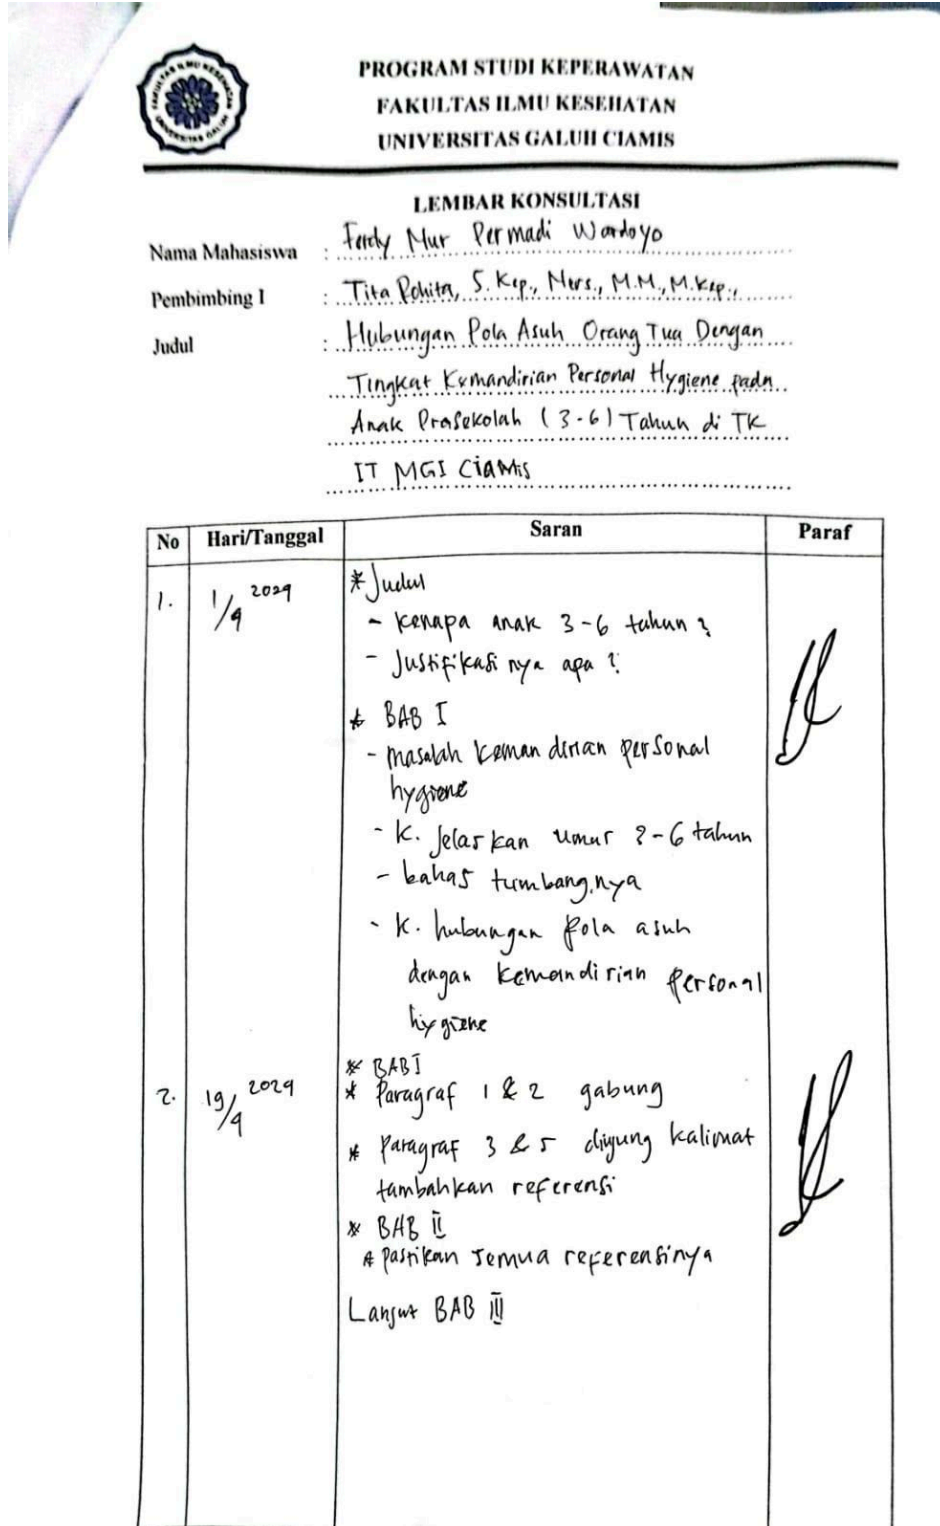 PROGRAM STUDI KEPERAWATAN
FAKULTAS ILMU KESEHATAN
UNIVERSITAS GALUH CIAMIS
FAKULTAS ILMU KESEHATAN
UNIVERSITAS GALUH
LEMBAR KONSULTASI
Nama Mahasiswa : Ferdy Nur Permadi Wardoyo
Pembimbing I : Tita Rohita, S.Kep., Ners., M.M., M.Kep.,
Judul : Hubungan Pola Asuh Orang Tua Dengan
Tingkat Kemandirian Personal Hygiene pada
Anak Prasekolah (3-6) Tahun di TK
IT MGI Ciamis
No Hari/Tanggal Saran Paraf
1. 1/4 2024 * Judul
- kenapa anak 3-6 tahun ?
- Justifikasi nya apa ?
* BAB I
- masalah kemandirian personal
hygiene
- K. jelaskan umur 3-6 tahun
- bahas tumbang.nya
- K. hubungan pola asuh
dengan kemandirian personal
hygiene
* BAB I
2. 19/4 2024 * Paragraf 1 & 2 gabung
* Paragraf 3 & 5 diujung kalimat
tambahkan referensi
* BAB II
* pastikan semua referensinya
Lanjut BAB III